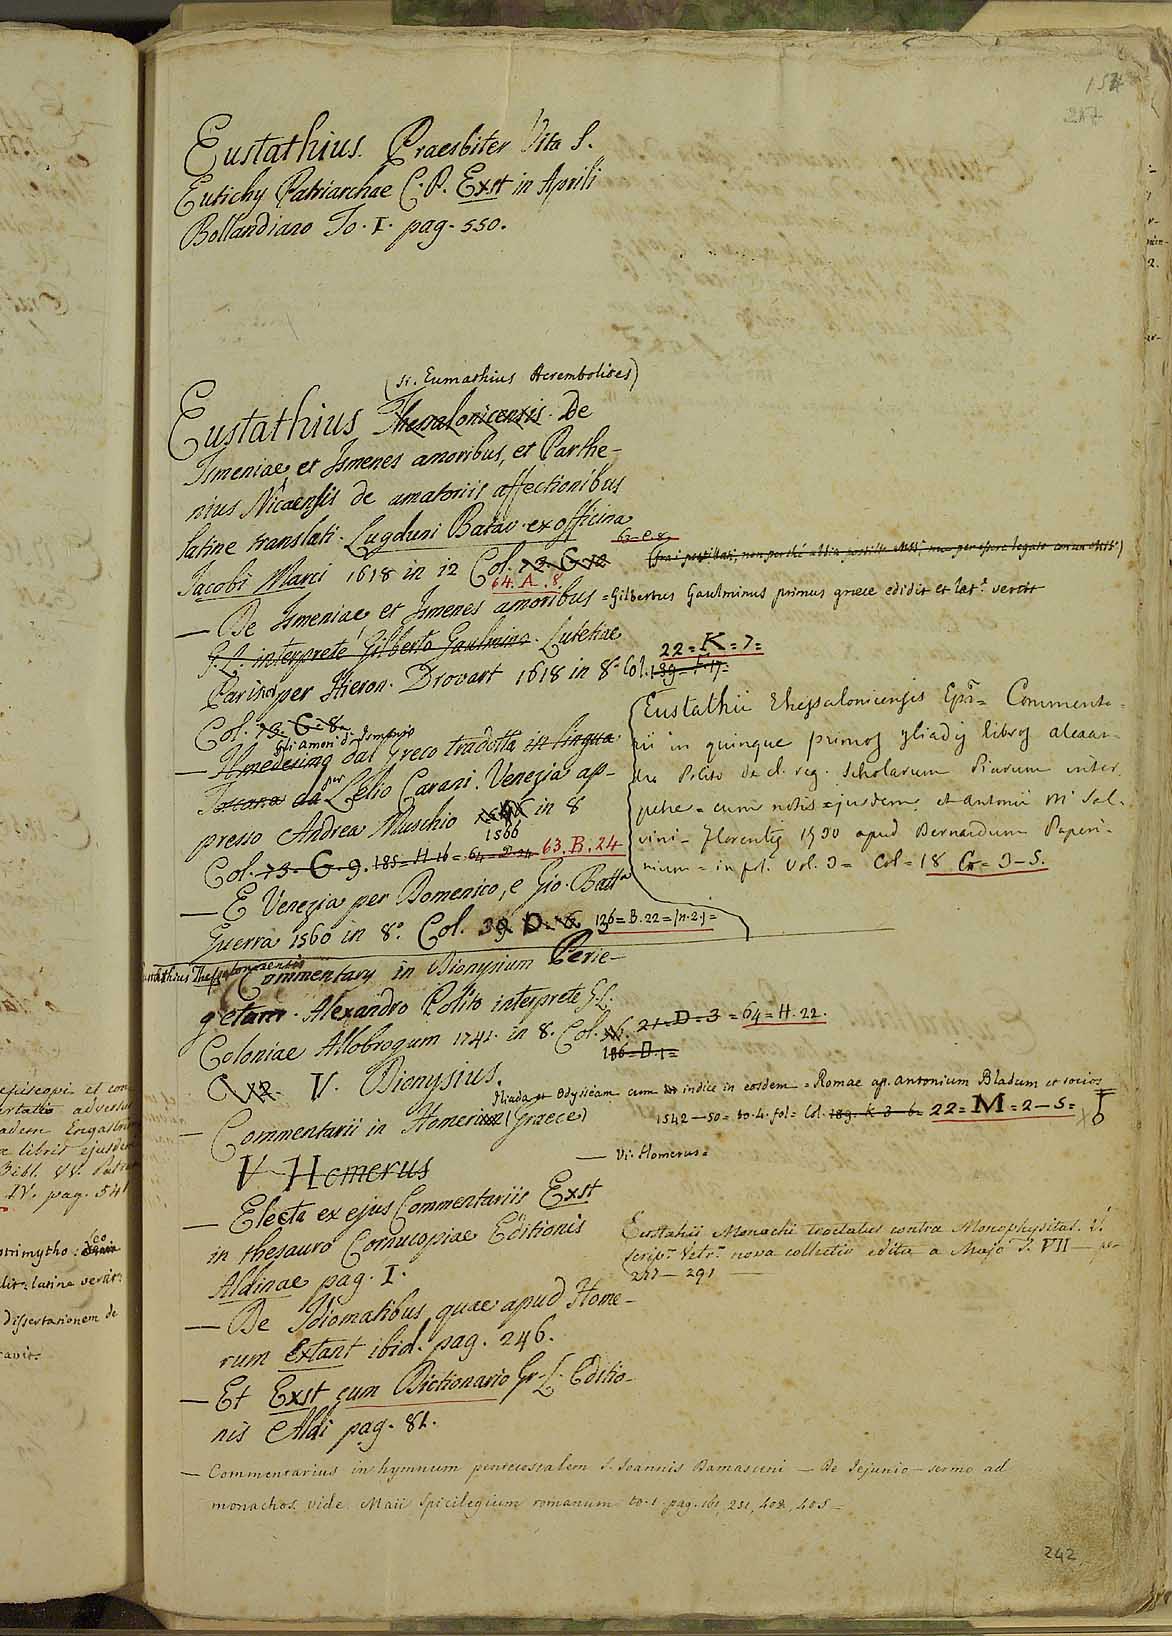 154
217
Eustathius. Praesbiter Vita S.
Eutichy Patriarchae C. P. Exst in Aprili
Bollandiano To. I. pag. 550.
(si. Eumathius Acrembolites)
Eustathius Thessalonicensis. De
Ismeniae et Ismenes amoribus, et Parthe-
nius Nicaensis de amatoriis affectionibus
latine translati. Lugduni Batav. ex officina
Jacobi Marci 1618 in 12 Col. 73. G. 12
G=C.8.
64. A. 8.
— De Ismeniae et Ismenes amoribus = Gilbertus Gaulminus primus graece edidit et lat.e vertit
G. L. interprete Gilberto Gaulmino. Lutetiae
Parisior per Hieron. Drovart 1618 in 8. Col. 139=F.17=
22=K=7=
Col. 73. G. 8.
Gli amori di Ismenio
— Il medesimo dal Greco tradotta in lingua
Toscana da per Lelio Carani. Venezia ap-
presso Andrea Muschio in 8
1566
Col. 73. G. 9. 185=H.16= 64=D.24 63.B.24
— E Venezia per Domenico, e Gio. Batta
Guerra 1560 in 8.° Col. 39 D. 6. 126=B.22=(n.2.)=
Eustathii Thessalonicensis Epi= Commenta-
rii in quinque primos Iliadis libros alexan-
dro Polito de cl. reg. Scholarum Piarum inter
prete = cum notis ejusdem et Antonii M. Sal-
vini = Florentiae 1730 apud Bernardum Paperi-
nium = in fol. vol. 3= Col= 18 G= 3-5.
Eustathius Thessalonicensis
Commentary in Dionysium Perie-
getam. Alexandro Polito interprete G. L.
Coloniae Allobrogum 1741. in 8. Col. 21=D=3 = 64=H.22.
186=D.1=
V. Dionysius.
Iliada et Odysseam cum indice in eosdem = Romae ap. Antonium Bladum et socios
— Commentarii in Homerum (Graece) 1542-50= to.4. fol= Col. 189. K 3-6= 22=M=2-5=
V Homerus
— Vi. Homerus=
— Electa ex ejus Commentariis Exst
in thesauro Cornucopiae Editionis
Aldinae pag. I.
— De Idiomatibus quae apud Home-
rum extant ibid. pag. 246.
— Et Exst cum Dictionario Gr-L. Editio-
nis Aldi pag. 81.
Eustathii Monachi tractatus contra Monophysitas. V.
Scrip.m Vet.m nova collectio edita a Majo T. VII — pa-
277-291
— Commentarius in hymnum pentecostalem S. Joannis Damasceni — De Jejunio — sermo ad
monachos. vide Maii Spicilegium romanum to. 1. pag. 161, 231, 402, 405 —
242